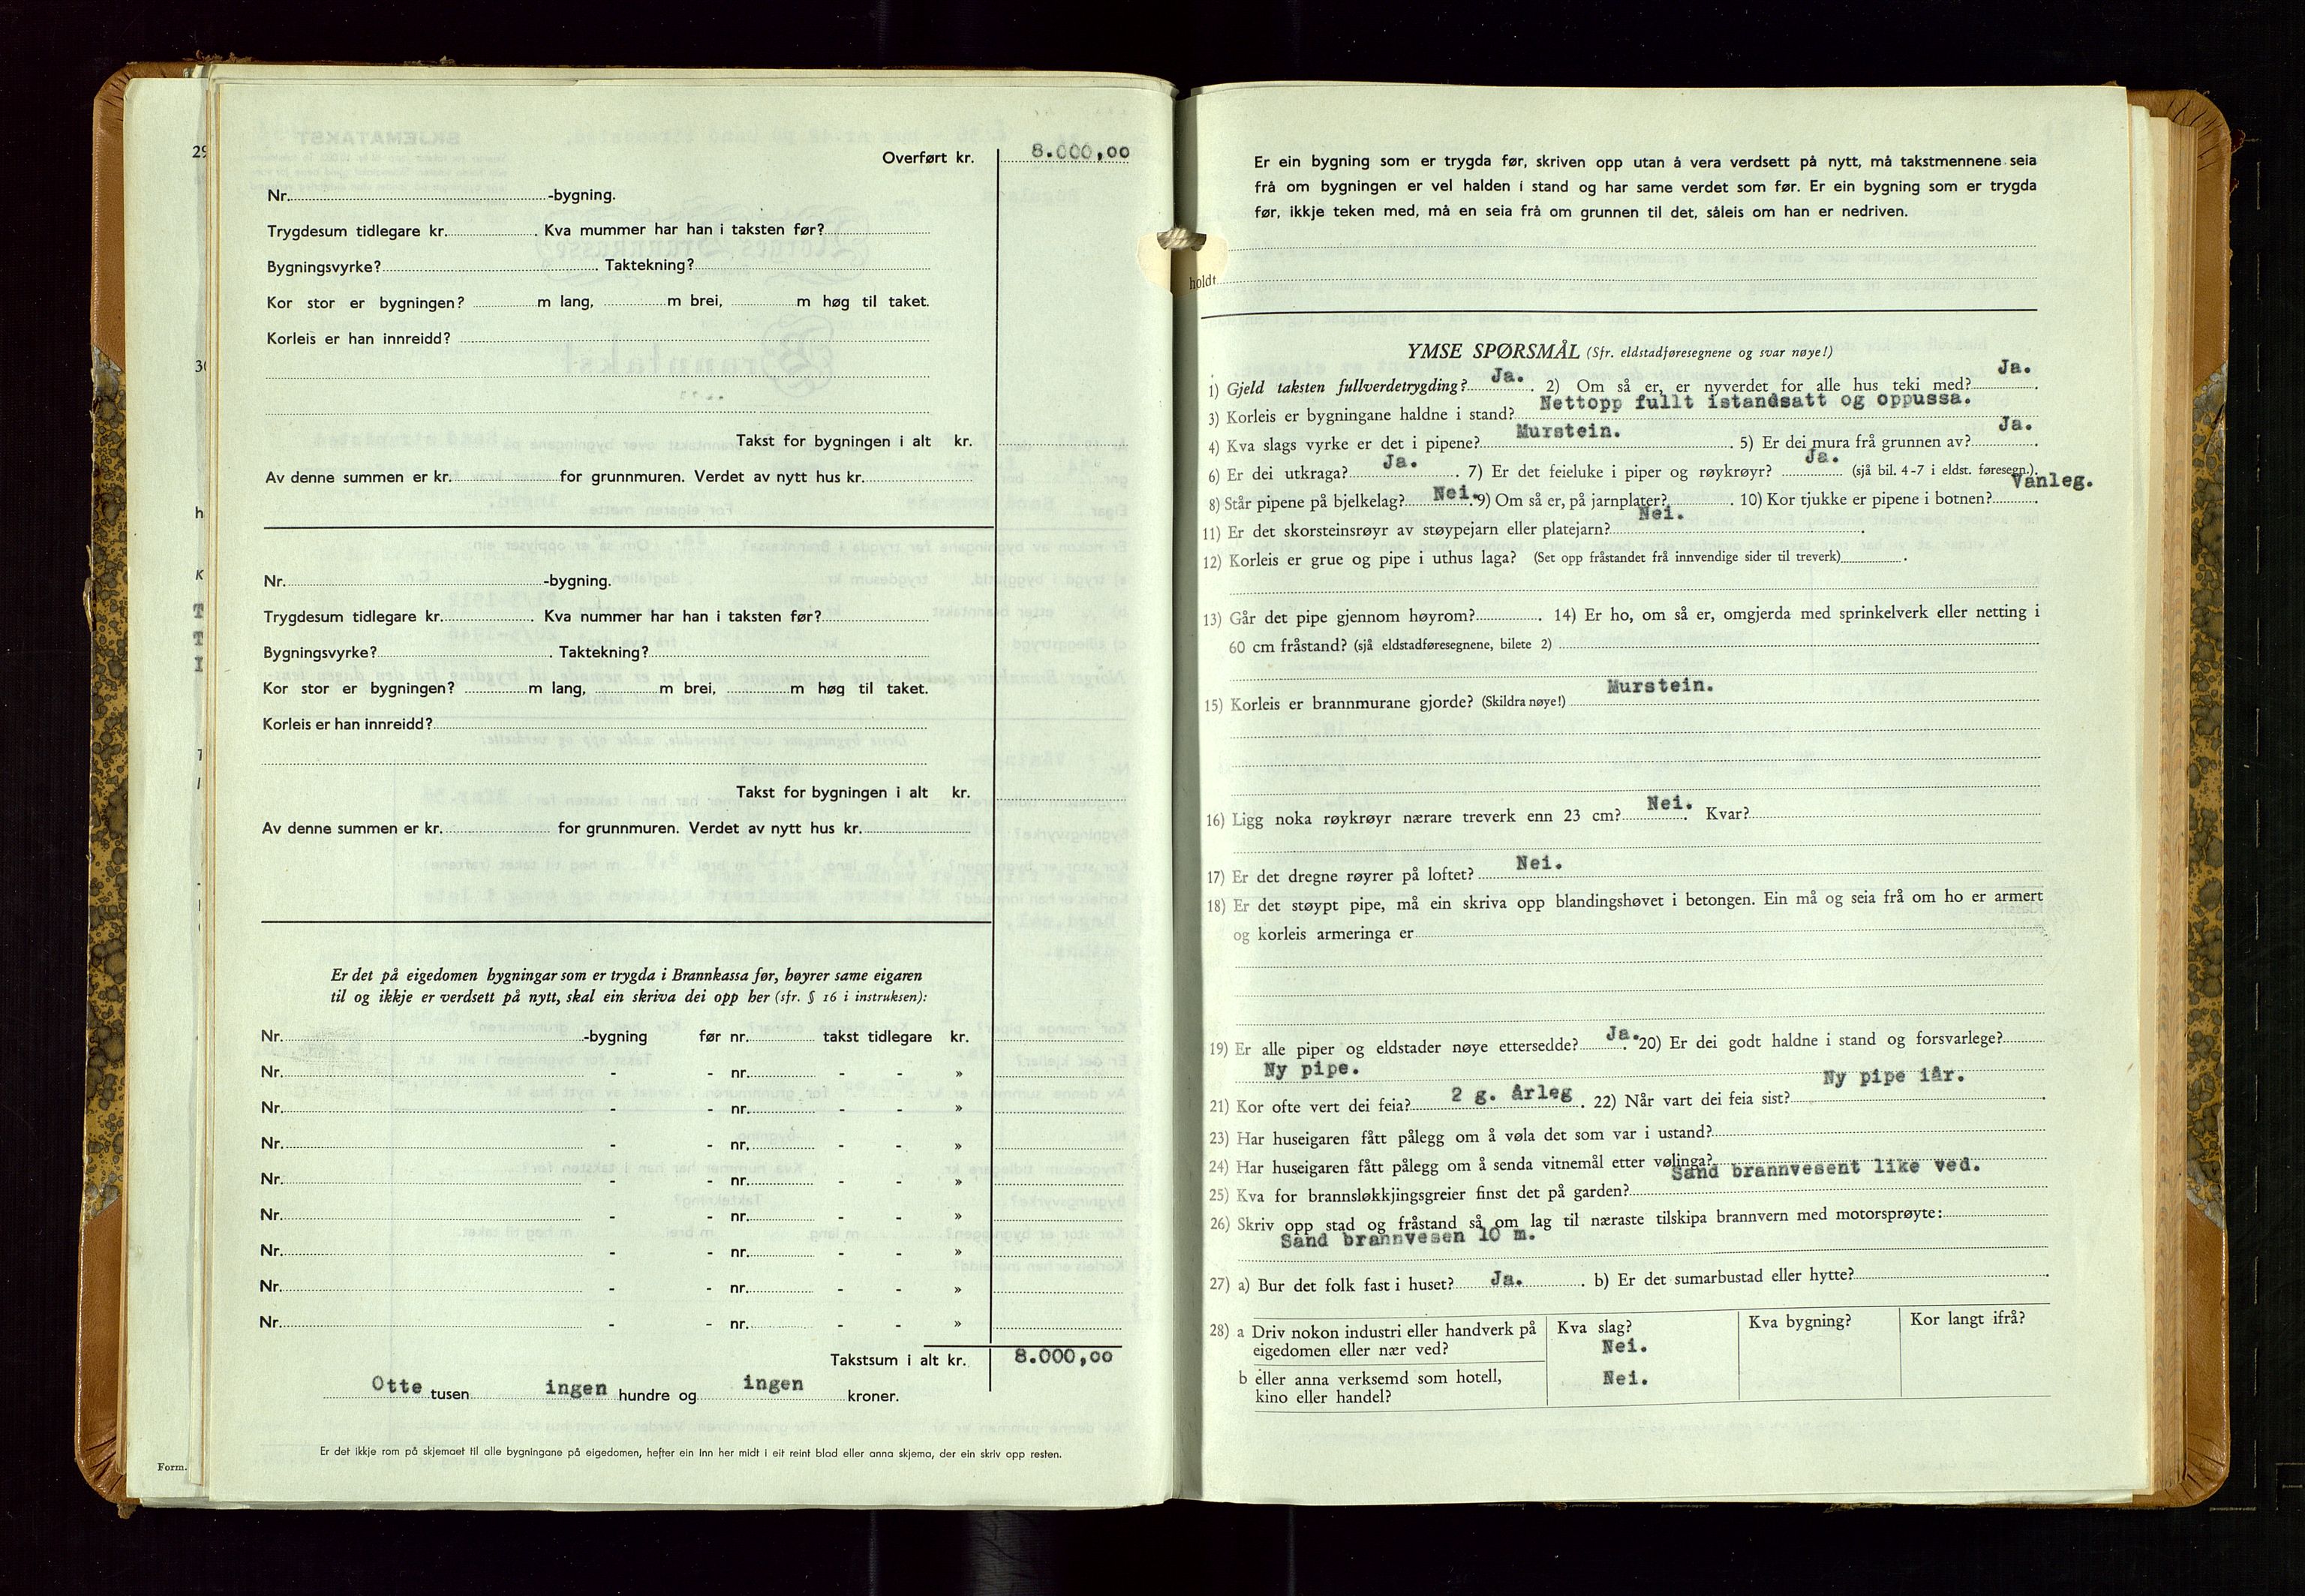 Overført kr. 8.000,00
Nr. -bygning.
Trygdesum tidlegare kr. . Kva mummer har han i taksten før?
Bygningsvyrke? . Taktekning?
Kor stor er bygningen? m lang, m brei, m høg til taket.
Korleis er han innreidd?
Takst for bygningen i alt kr.
Av denne summen er kr. for grunnmuren. Verdet av nytt hus kr.
Nr. -bygning.
Trygdesum tidlegare kr. . Kva nummer har han i taksten før?
Bygningsvyrke? . Taktekning?
Kor stor er bygningen? m lang, m brei, m høg til taket.
Korleis er han innreidd?
Takst for bygningen i alt kr.
Av denne summen er kr. for grunnmuren. Verdet av nytt hus kr.
Er det på eigedomen bygningar som er trygda i Brannkassa før, høyrer same eigaren
til og ikkje er verdsett på nytt, skal ein skriva dei opp her (sfr. § 16 i instruksen):
Nr. -bygning før nr. takst tidlegare kr.
Nr. - - nr. - - »
Nr. - - nr. - - »
Nr. - - nr. - - »
Nr. - - nr. - - »
Nr. - - nr. - - »
Nr. - - nr. - - »
Nr. - - nr. - - »
Nr. - - nr. - - »
Takstsum i alt kr. 8.000,00
Otte tusen ingen hundre og ingen kroner.
Er det ikkje rom på skjemaet til alle bygningane på eigedomen, hefter ein inn her midt i eit reint blad eller anna skjema, der ein skriv opp resten.
Form.
Er ein bygning som er trygda før, skriven opp utan å vera verdsett på nytt, må takstmennene seia
frå om bygningen er vel halden i stand og har same verdet som før. Er ein bygning som er trygda
før, ikkje teken med, må en seia frå om grunnen til det, såleis om han er nedriven.
holdt
YMSE SPØRSMÅL (Sfr. eldstadføresegnene og svar nøye!)
1) Gjeld taksten fullverdetrygding? Ja. . 2) Om så er, er nyverdet for alle hus teki med? Ja. .
3) Korleis er bygningane haldne i stand? Nettopp fullt istandsatt og oppussa.
4) Kva slags vyrke er det i pipene? Murstein. . 5) Er dei mura frå grunnen av? Ja. .
6) Er dei utkraga? Ja. . 7) Er det feieluke i piper og røykrøyr? Ja. (sjå bil. 4-7 i eldst. føresegn.).
8) Står pipene på bjelkelag? Nei. 9) Om så er, på jarnplater? . 10) Kor tjukke er pipene i botnen? Vanleg.
11) Er det skorsteinsrøyr av støypejarn eller platejarn? Nei. .
12) Korleis er grue og pipe i uthus laga? (Set opp fråstandet frå innvendige sider til treverk) .
13) Går det pipe gjennom høyrom? . 14) Er ho, om så er, omgjerda med sprinkelverk eller netting i
60 cm fråstand? (sjå eldstadføresegnene, bilete 2)
15) Korleis er brannmurane gjorde? (Skildra nøye!) Murstein.
16) Ligg noka røykrøyr nærare treverk enn 23 cm? Nei. . Kvar?
17) Er det dregne røyrer på loftet? Nei.
18) Er det støypt pipe, må ein skriva opp blandingshøvet i betongen. Ein må og seia frå om ho er armert
og korleis armeringa er
19) Er alle piper og eldstader nøye ettersedde? Ja. 20) Er dei godt haldne i stand og forsvarlege?
Ny pipe.
21) Kor ofte vert dei feia? 2 g. årleg . 22) Når vart dei feia sist? Ny pipe iår. .
23) Har huseigaren fått pålegg om å vøla det som var i ustand?
24) Har huseigaren fått pålegg om å senda vitnemål etter vølinga?
25) Kva for brannsløkkjingsgreier finst det på garden? Sand brannvesent like ved.
26) Skriv opp stad og fråstand så om lag til næraste tilskipa brannvern med motorsprøyte:
Sand brannvesen 10 m.
27) a) Bur det folk fast i huset? Ja. . b) Er det sumarbustad eller hytte? .
28) a Driv nokon industri eller handverk på Kva slag? Kva bygning? Kor langt ifrå?
eigedomen eller nær ved? Nei.
b eller anna verksemd som hotell, Nei.
kino eller handel?